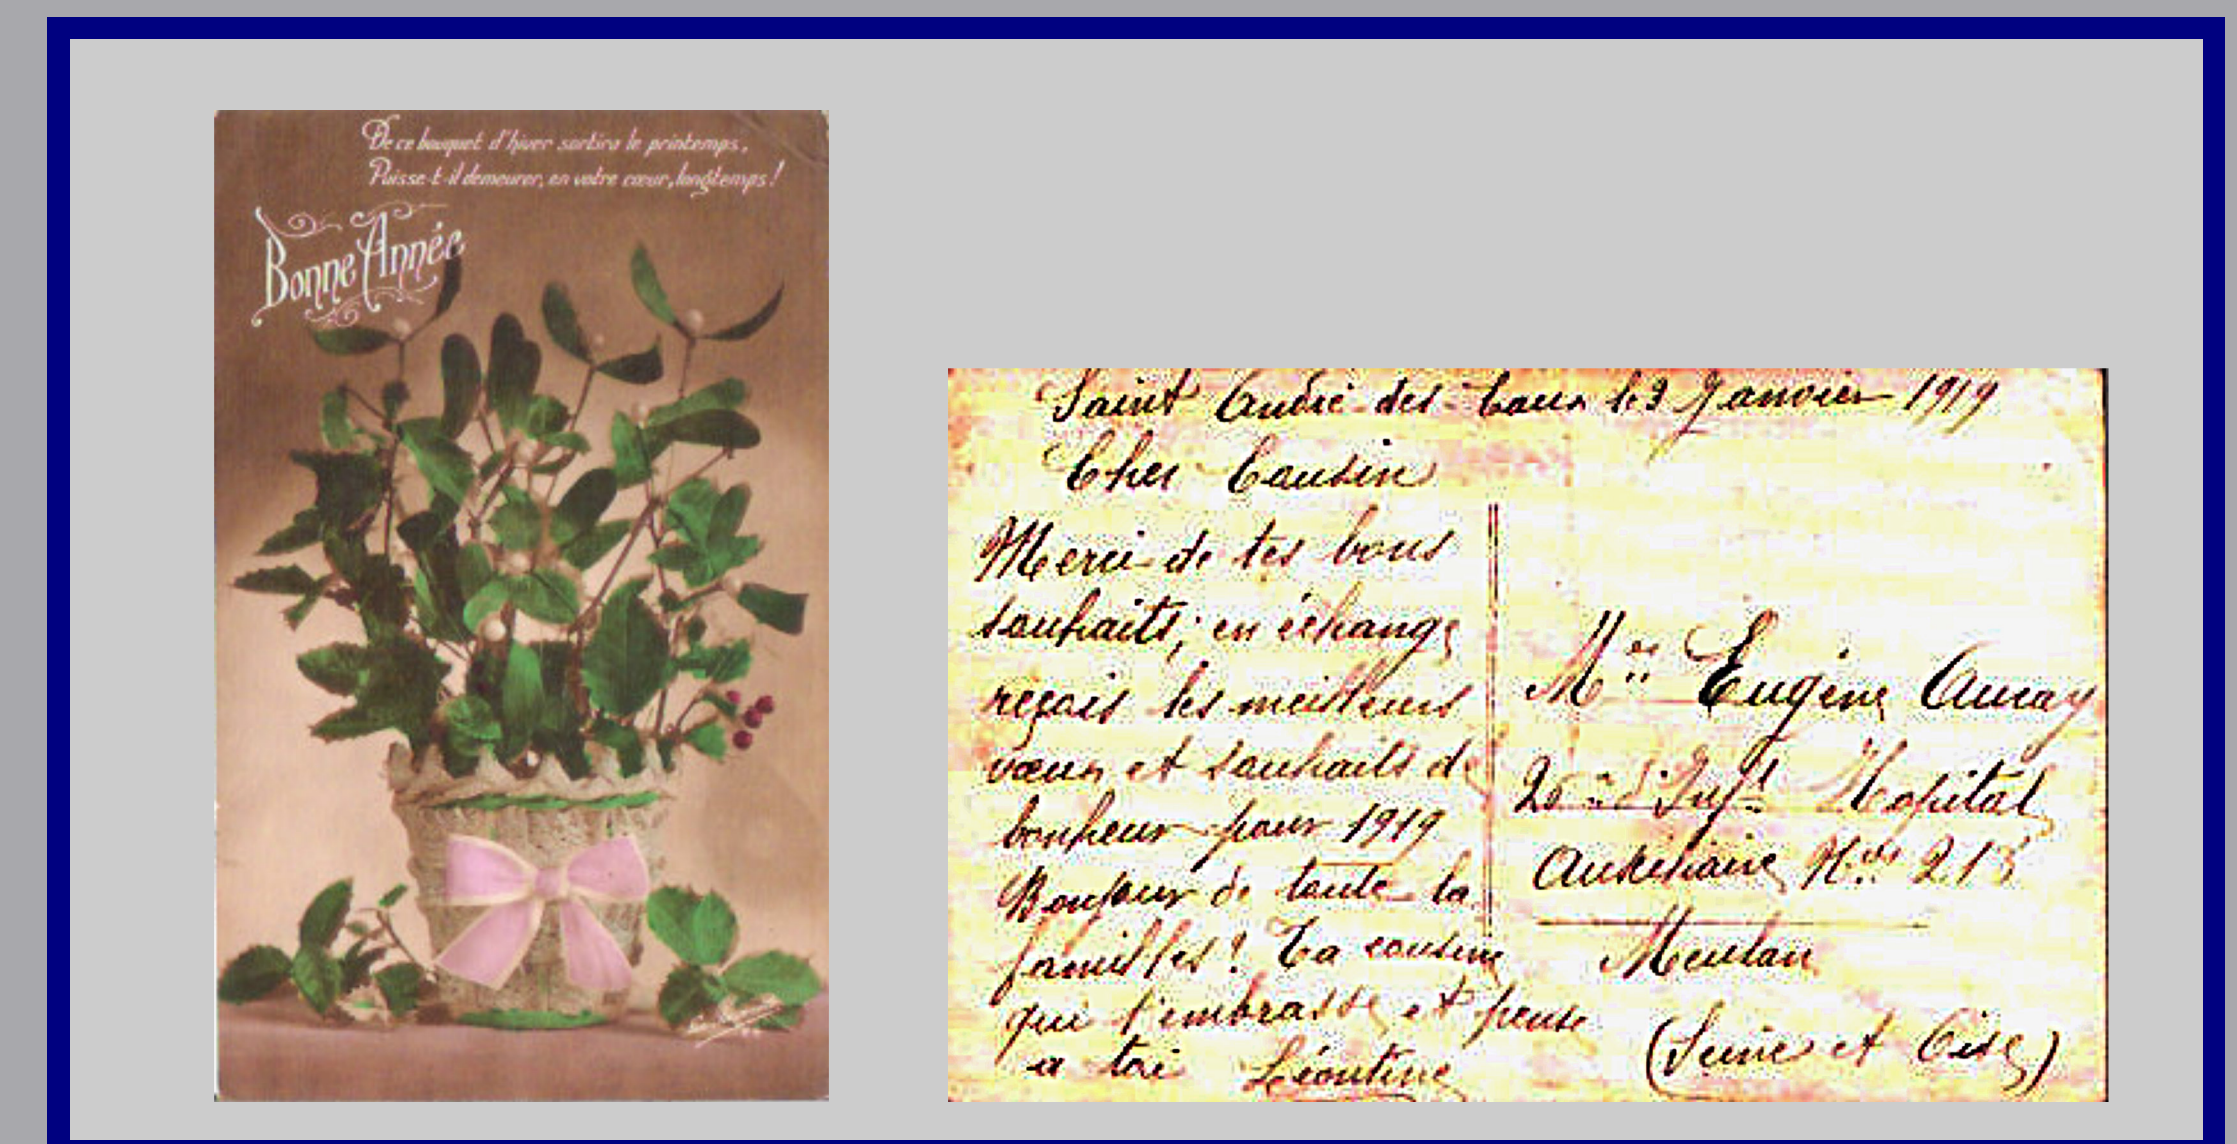 De ce bouquet d'hiver sortira le printemps,
Puisse-t-il demeurer, en votre cœur, longtemps!
Bonne Année
Saint André des Eaux le 3 Janvier 1919
Cher Cousin
Merci de tes bons
souhaits; en échange
reçois les meilleurs
vœux et souhaits de
bonheur pour 1919
Bonjour de toute la
famille! Ta cousine
qui t'embrasse et pense
a toi Léontine
Mr Eugène Auray
Hopital
Auxiliaire N° 213
Meulan
(Seine et Oise)